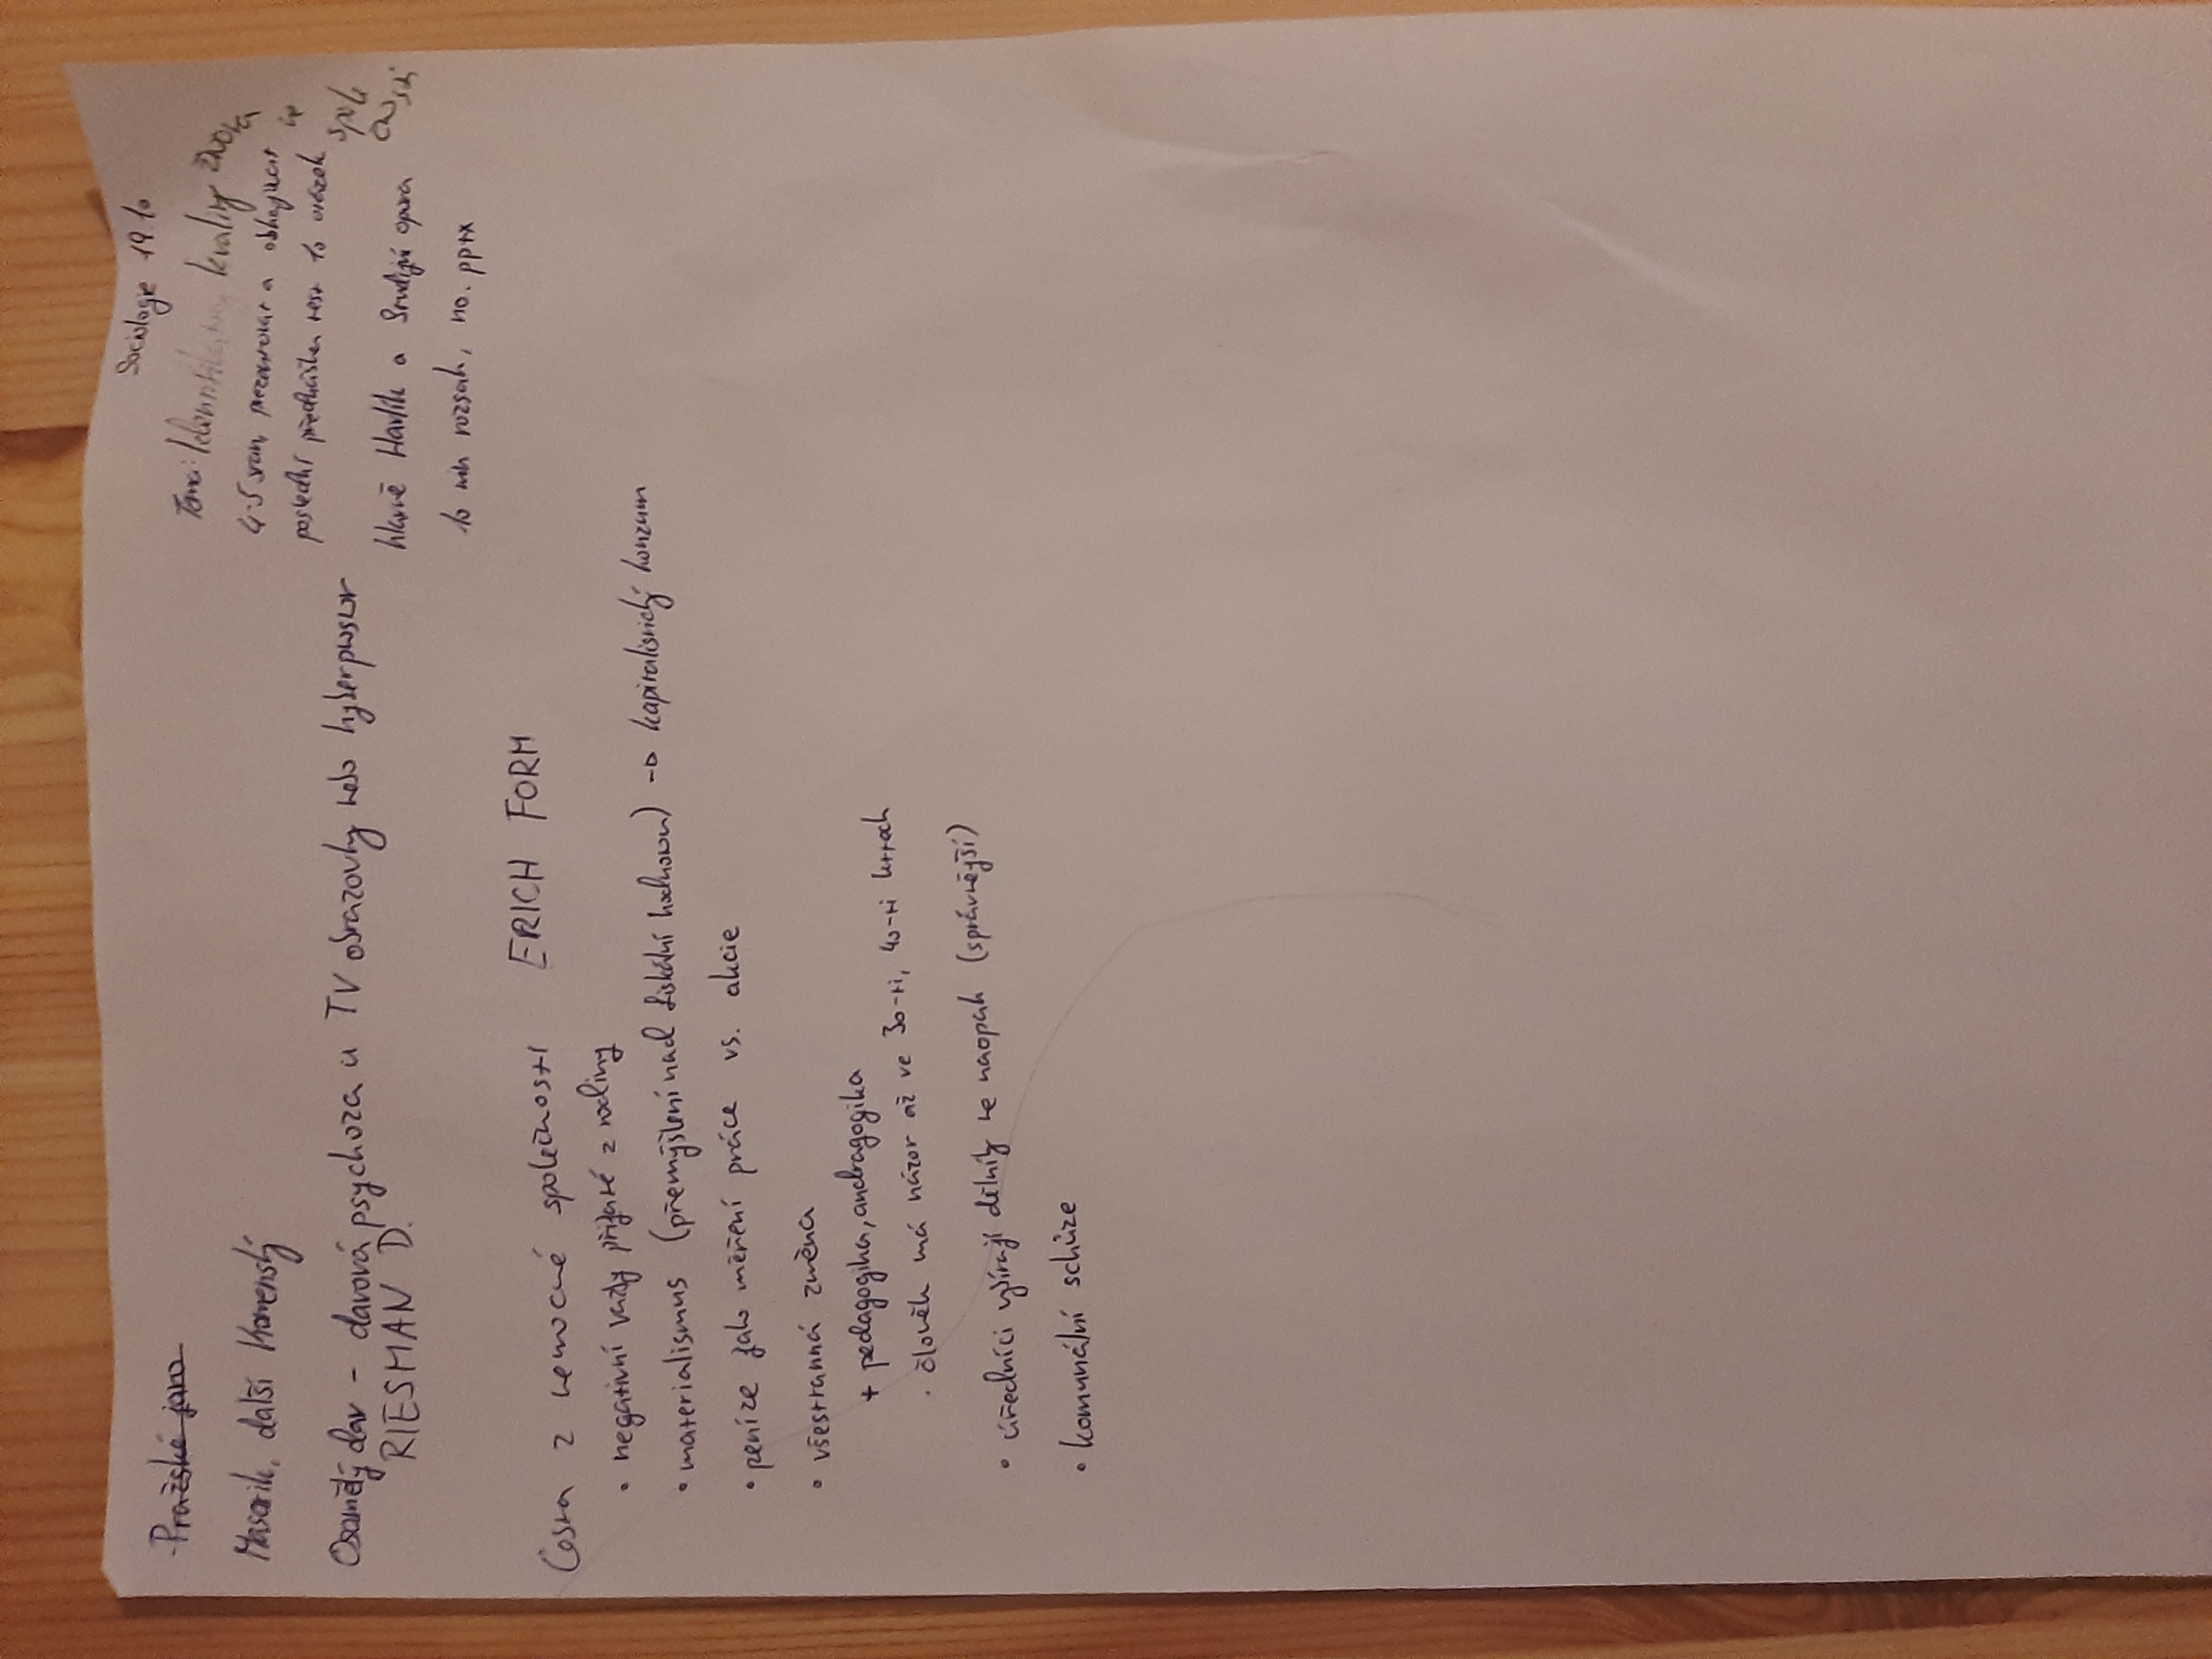 Sociologie 19.10
Pražské jaro
Téma: kvality života
Masarik, další Komenský
4-5 stran prezenovat a obhajovat
poslední přednáška test 10 otázek
Osamělý dav - davová psychoza u TV obrazovky nebo hyberpwswr
RIESMAN D.
hlavně Havlík a Studijní opora
10 min rozsah, no. pptx
Cesta z nemocné společnosti ERICH FORM
• negativní vazby přijaté z rodiny
• materialismus (přemýšlení nad fiskální hodnotou) → kapitalistický konzum
• peníze jako měření práce vs. akcie
• všestranná změna
+ pedagogika, andragogika
. člověk má názor až ve 30-ti, 40-ti letech
• úředníci vybírají dělníky ne naopak (správnější)
• komunální schůze